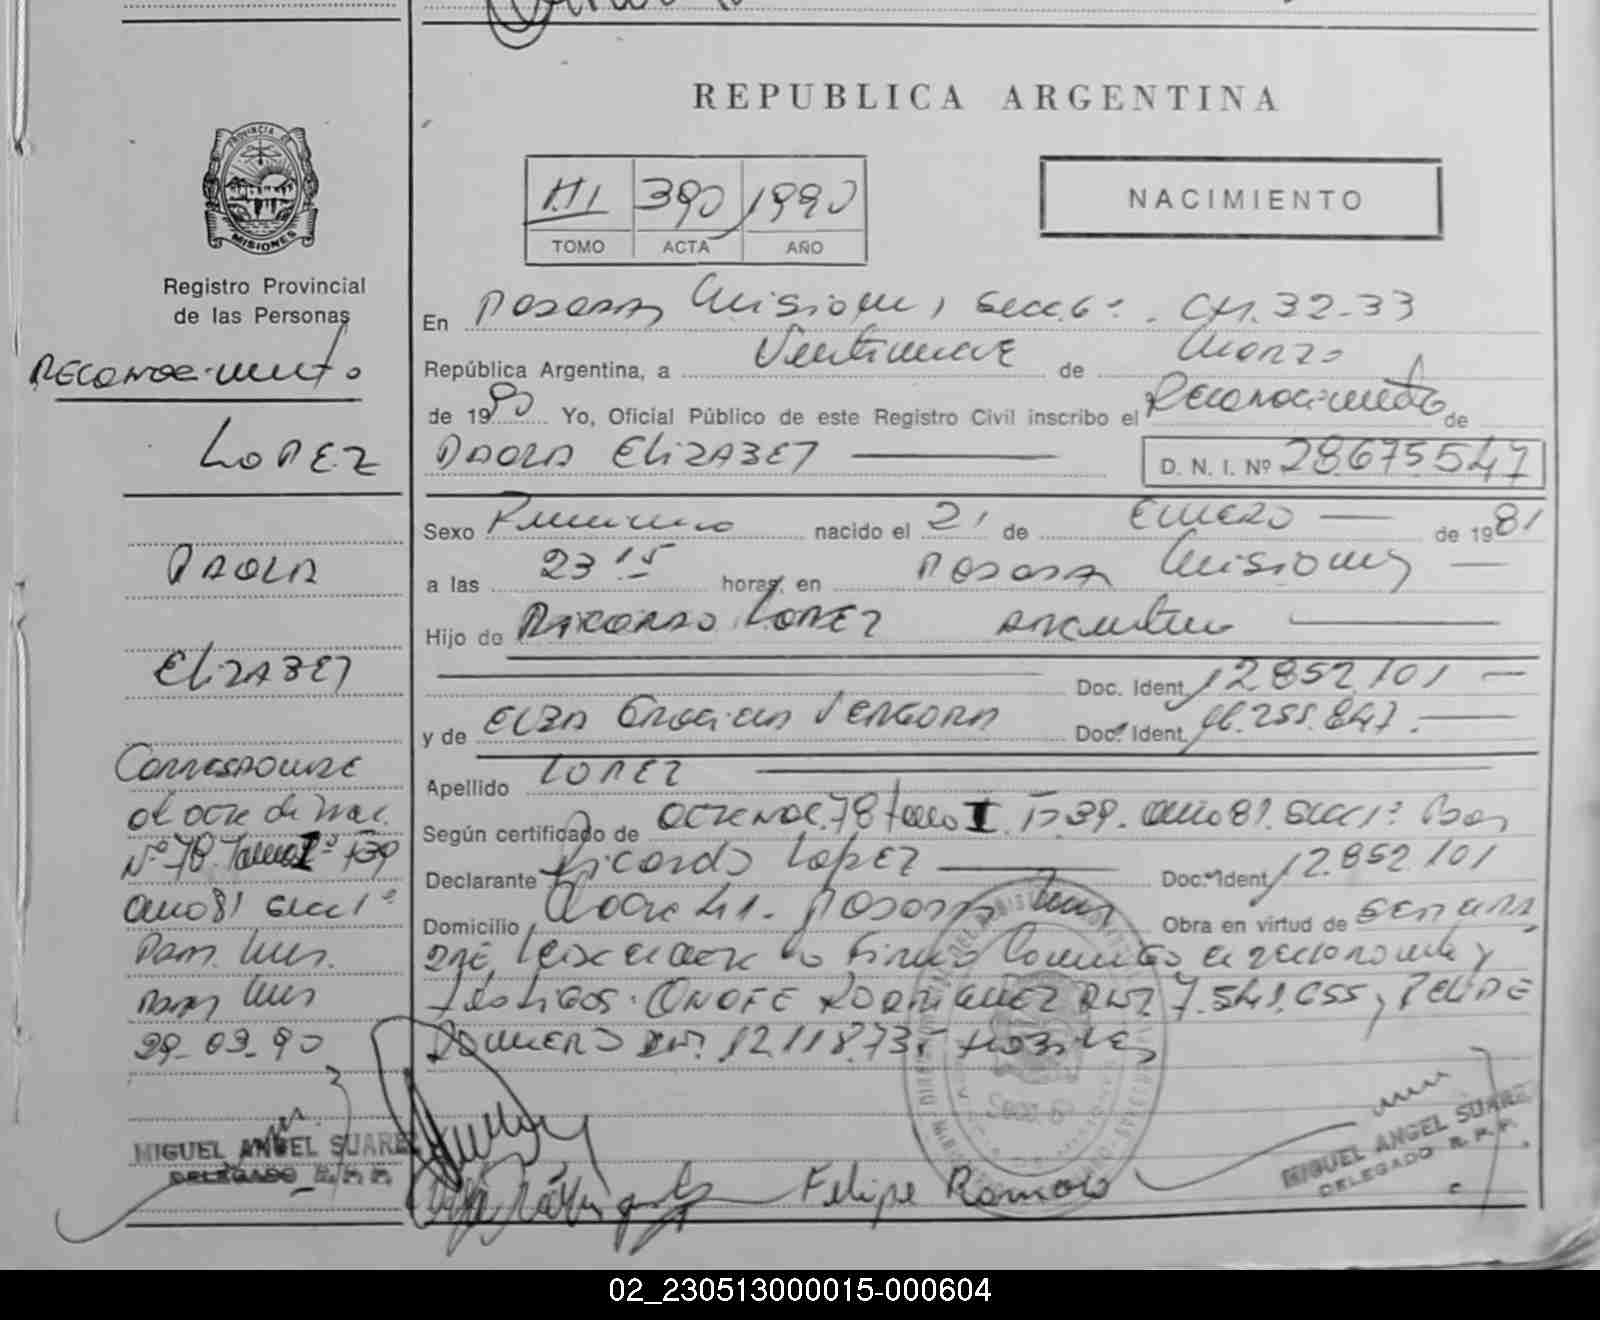 REPUBLICA ARGENTINA
PROVINCIA DE
MISIONES
Registro Provincial
de las Personas
III 390 1990
TOMO ACTA AÑO
NACIMIENTO
Reconocimiento
LOPEZ
PAOLA
ELIZABET
Corresponde
al acta de Nac.
Nº 78 Tomo I º Fº 39
año 81 Secc 1ª
Pdas. Mnes.
Pdas Mnes
29-03-90
MIGUEL ANGEL SUAREZ
DELEGADO R.P.P.
En Posadas Misiones, Secc. 6ª. CH. 32-33
República Argentina, a Veintinueve de Marzo
de 1990 Yo, Oficial Público de este Registro Civil inscribo el Reconocimiento de
PAOLA ELIZABET D. N. I. Nº 28675547
Sexo Femenino nacido el 21 de ENERO de 1981
a las 23 15 horas, en Posadas Misiones
Hijo de RICARDO LOPEZ Argentino
Doc. Ident. 12852101
y de ELBA Graciela VERGARA Doc. Ident. 16.255.847.
Apellido LOPEZ
Según certificado de Acta Nac. 78 Tomo I Fº 39. año 81. Secc 1ª Pdas
Declarante Ricardo Lopez Doc. Ident. 12.852.101
Domicilio 41. Posadas Mnes Obra en virtud de
acta la firma y
testigos. ONOFE RODRIGUEZ DNI 7.541.655, FELIPE
ROMERO DNI. 12.118.735
Felipe Romero
MIGUEL ANGEL SUAREZ
DELEGADO R. P. P.
02_230513000015-000604